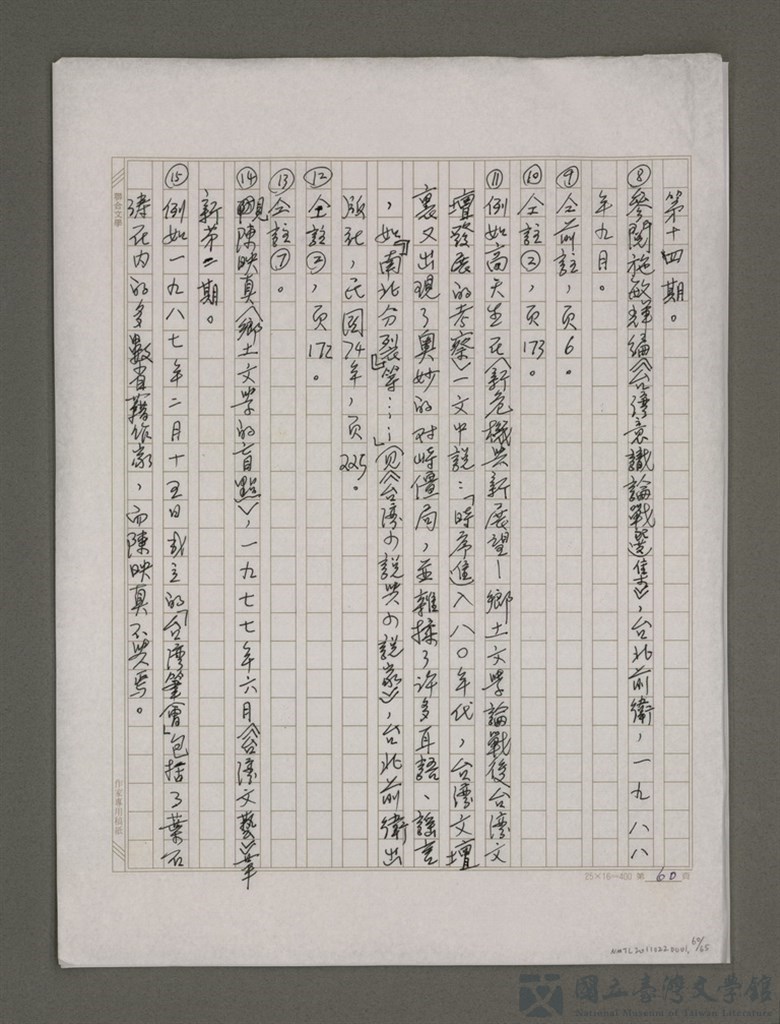 第十四期。
⑧參閱施敏輝編《台灣意識論戰選集》，台北前衛，一九八八
年九月。
⑨仝前註，頁6。
⑩仝註②，頁173。
⑪例如高天生在〈新危機與新展望—鄉土文學論戰後台灣文
壇發展的考察〉一文中說：「時序進入八〇年代，台灣文壇
裏又出現了奧妙的对峙僵局，並雜揉了许多耳語、謠言
，如『南北分裂』等……」（見《台湾小說與小說家》，台北前衛出
版社，民国74年，頁225。
⑫仝註②，頁172。
⑬仝註⑦。
⑭覌陳映真〈鄉土文學的盲點〉，一九七七年六月《台灣文藝》革
新第二期。
⑮例如一九八七年二月十五日成立的「台灣筆會」包括了葉石
濤在内的多數省籍作家，而陳映真不與焉。
聯合文學
作家專用稿紙
25×16＝400 第 60 頁
NMTL20110220001, 60/65
國立臺灣文學館
National Museum of Taiwan Literature